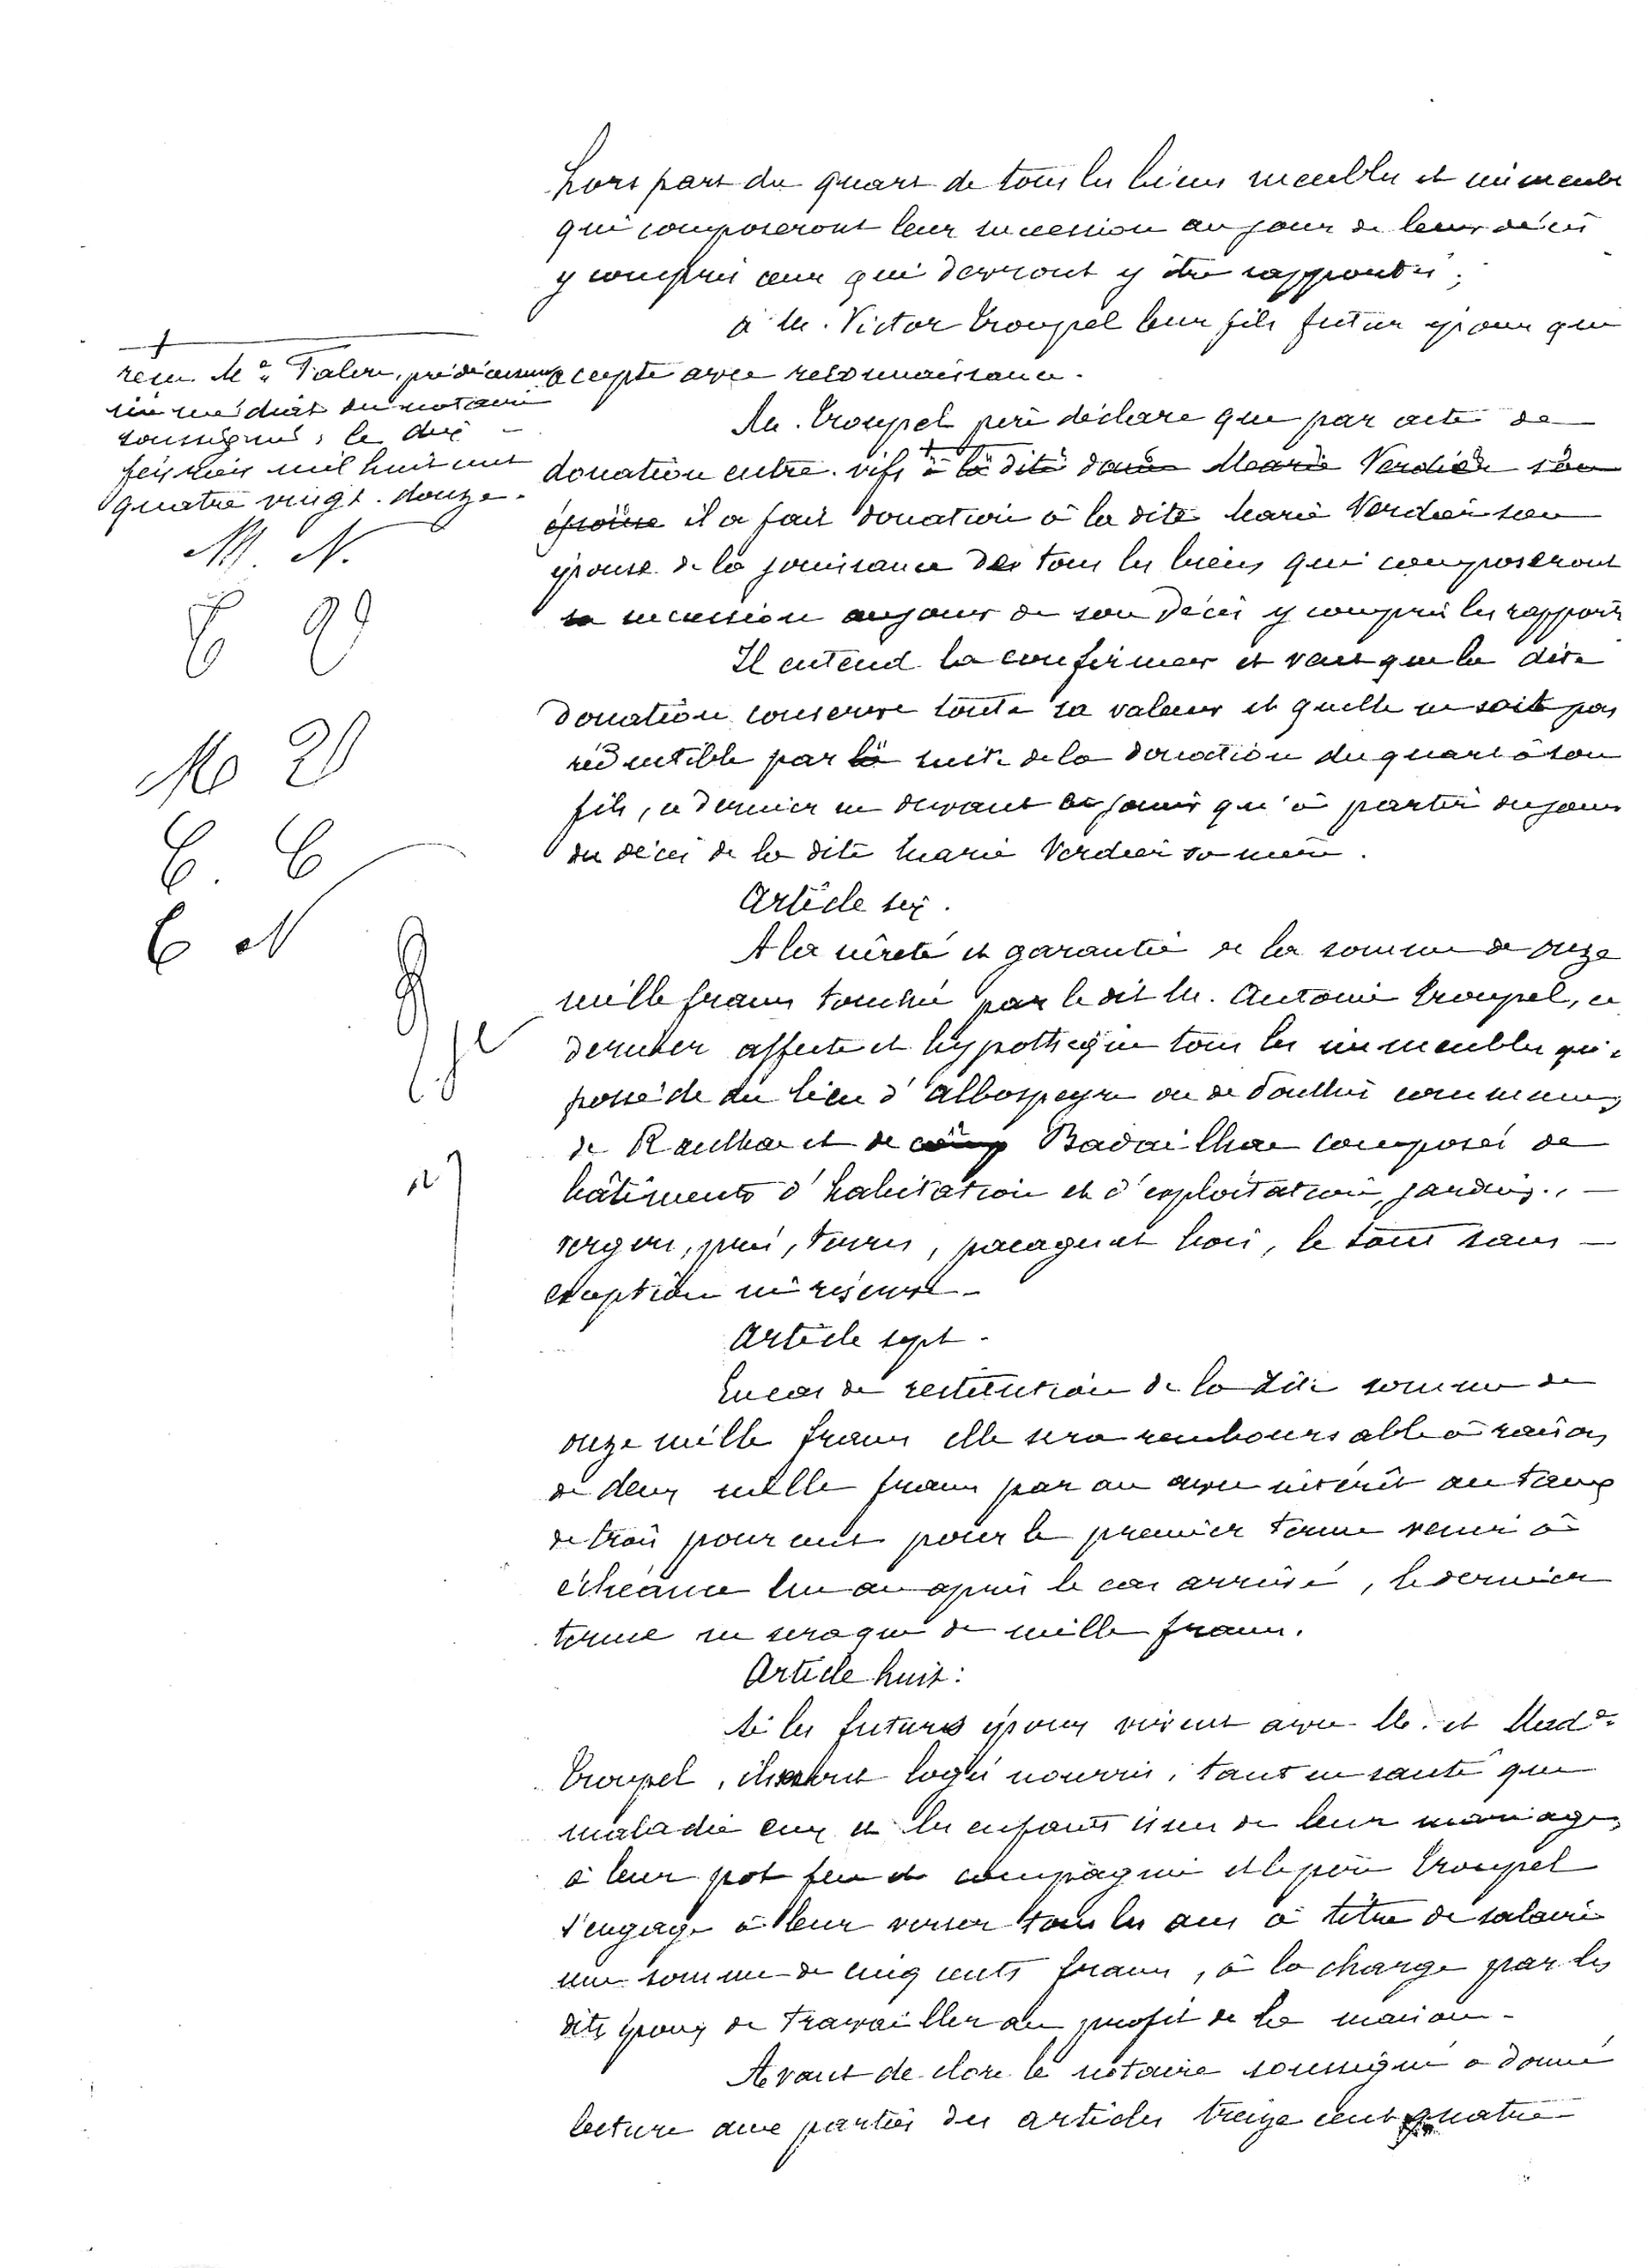 hors part du quart de tous les biens meubles et immeubles
qui composeront leur succession au jour de leur décès
y compris ceux qui devront y être rapportés ;
à M. Victor Troupel leur fils futur époux qui
accepte avec reconnaissance.
M. Troupel père déclare que par acte de
donation entre vifs + à la dite dame Marie Verdier son
épouse il a fait donation à la dite Marie Verdier son
épouse de la jouissance de tous les biens qui composeront
sa succession au jour de son décès y compris les rapports
Il entend la confirmer et veut que la dite
donation conserve toute sa valeur et quelle ne soit pas
réductible par la suite de la donation du quart à son
fils, ce dernier ne devant en jouir qu'à partir du jour
du décès de la dite Marie Verdier sa mère.
Article six.
A la sûreté et garantie de la somme de onze
mille francs touchée par le dit M. Antoine Troupel, ce
dernier affecte et hypothèque tous les immeubles qu'il
possède au lieu d'albospeyre ou de communes
de Raulhac et de Badailhac composés de
bâtiments d'habitation et d'exploitation, jardins,
vergers, prés, terres, pacages et bois, le tout sans
exception ni réserve -
Article sept -
En cas de restitution de la dite somme de
onze mille francs elle sera remboursable à raison
de deux mille francs par an avec intérêt au taux
de trois pour cent pour le premier terme venir à
échéance un an après le cas arrivé, le dernier
terme ne sera que de mille francs.
Article huit :
Si les futurs époux vivent avec M. et Made
Troupel, ils seront logés nourris, tant en santé que
maladie eux et les enfants issus de leur mariage,
à leur pot feu et compagnie et le père Troupel
s'engage à leur verser tous les ans à titre de salaire
une somme de cinq cents francs, à la charge par les
dits époux de travailler au profit de la maison -
Avant de clore le notaire soussigné a donné
lecture aux parties des articles treize cent quatre
+
reçu Me Talon, prédécesseur
immédiat du notaire
soussigné, le dix
février mil huit cent
quatre vingt-douze.
M. N.